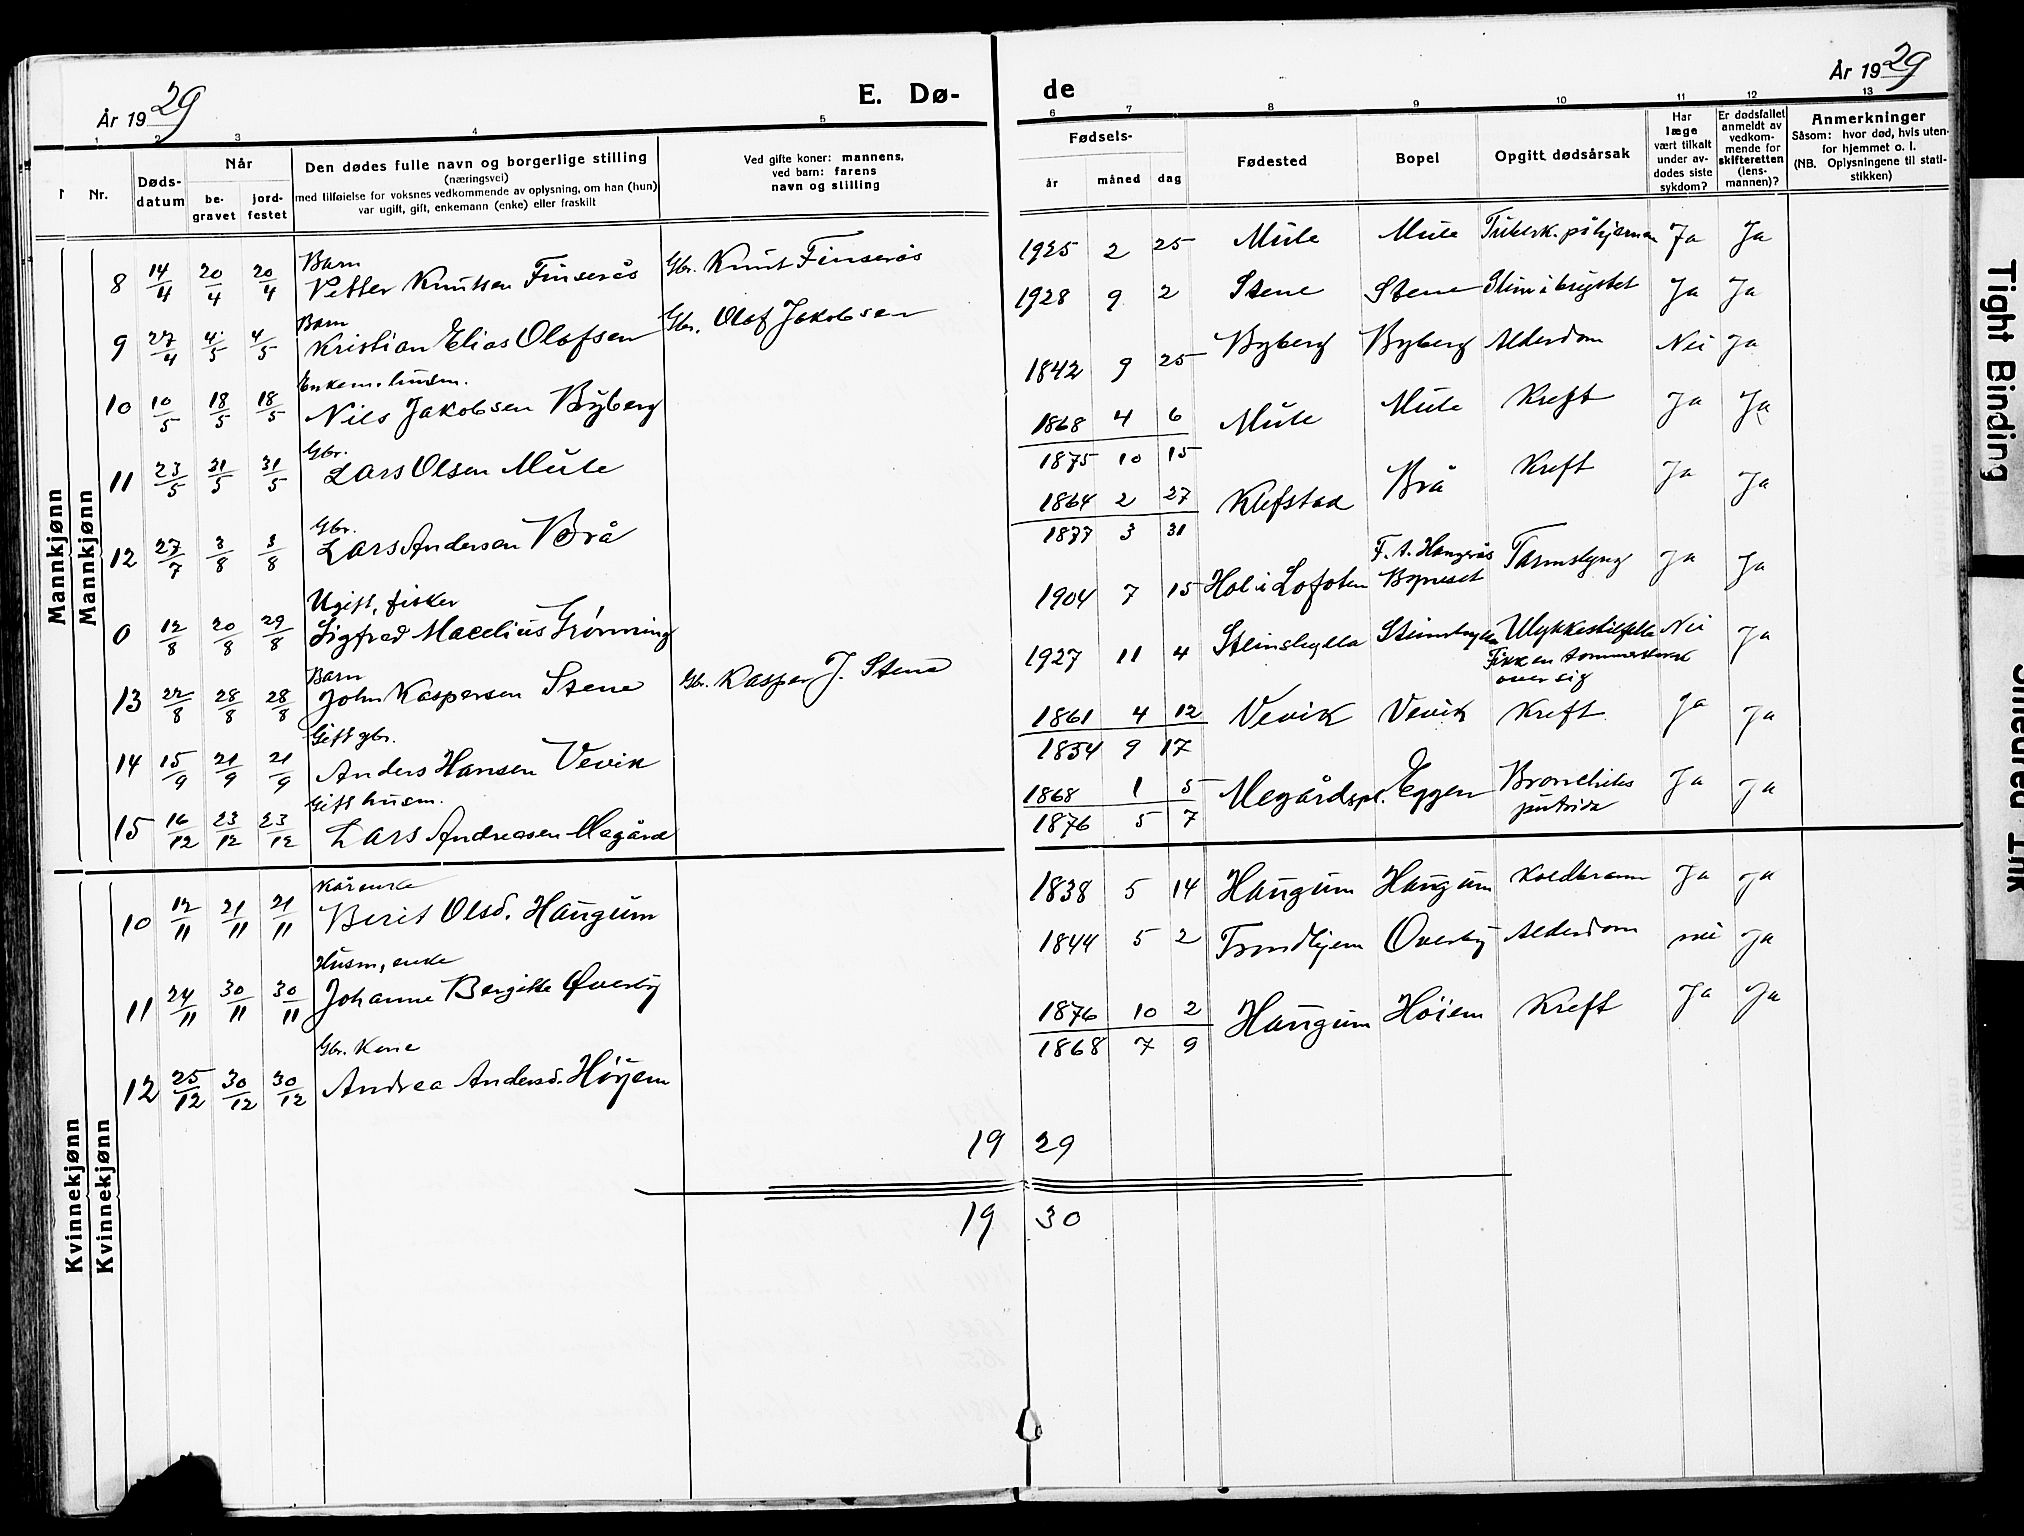 År 1929
E. Dø-
de
År 1929
1 2 3 4 5
6 7 8 9 10 11 12 13
Nr.
Døds-
datum
Når
be-
gravet
jord-
festet
Den dødes fulle navn og borgerlige stilling
(næringsvei)
med tilføielse for voksnes vedkommende av oplysning, om han (hun)
var ugift, gift, enkemann (enke) eller fraskilt
Ved gifte koner: mannens,
ved barn: farens
navn og stilling
Fødsels-
år måned dag
Fødested
Bopel
Opgitt dødsårsak
Har
læge
vært tilkalt
under av-
dødes siste
sykdom?
Er dødsfallet
anmeldt av
vedkom-
mende for
skifteretten
(lens-
mannen)?
Anmerkninger
Såsom: hvor død, hvis uten-
for hjemmet o. l.
(NB. Oplysningene til stati-
stikken)
Mannkjønn
Mannkjønn
Barn
8 14/4 20/4 20/4 Petter Knutsen Finserås Gbr. Knut Finserås 1925 2 25 Mule Mule Tuberk. på hjernen Ja Ja
Barn
9 27/4 4/5 4/5 Kristian Elias Olafsen Gbr. Olaf Jakobsen 1928 9 2 Stene Stene Slim i brystet Ja Ja
Enkem. husm.
10 10/5 18/5 18/5 Nils Jakobsen Byberg 1842 9 25 Byberg Byberg Alderdom Nei Ja
Gbr.
11 23/5 31/5 31/5 Lars Olsen Mule 1868 4 6 Mule Mule Kreft Ja Ja
1875 10 15
Gbr.
12 27/7 3/8 3/8 Lars Andersen Brå 1864 2 27 Klefstad Brå Kreft Ja Ja
1877 3 31
Ugift, fisker
0 12/8 20/8 29/8 Sigfred Macelius Grønning 1904 7 15 Hol i Lofoten F. A. Haugerås Bopneset Tarmslyng Ja Ja
Barn
13 22/8 28/8 28/8 John Kaspersen Stene Gbr. Kasper J. Stene 1927 11 4 Steinshylla Steinshylla Ulykkestilfelle Nei Ja
Fikk en tømmerstokk
over sig
Gift gbr.
14 15/9 21/9 21/9 Anders Hansen Vevik 1861 4 12 Vevik Vevik Kreft Ja Ja
1854 9 17
Gift husm.
15 16/12 23/12 23/12 Lars Andreasen Megård 1868 1 5 Megårdspl. Eggen Bronchitis putrida Ja Ja
1876 5 7
Kvinnekjønn
Kvinnekjønn
Kårenke
10 12/11 21/11 21/11 Berit Olsd. Haugum 1838 5 14 Haugum Haugum Koldbrann Ja Ja
Husm, enke
11 24/11 30/11 30/11 Johanne Bergitte Øverby 1844 5 2 Trondhjem Overby Alderdom nei Ja
Gbr. Kone
12 25/12 30/12 30/12 Andrea Andersd. Høyem 1876 10 2 Haugum Høiem Kreft Ja Ja
1868 7 9
19 29
19 30
Tight Binding